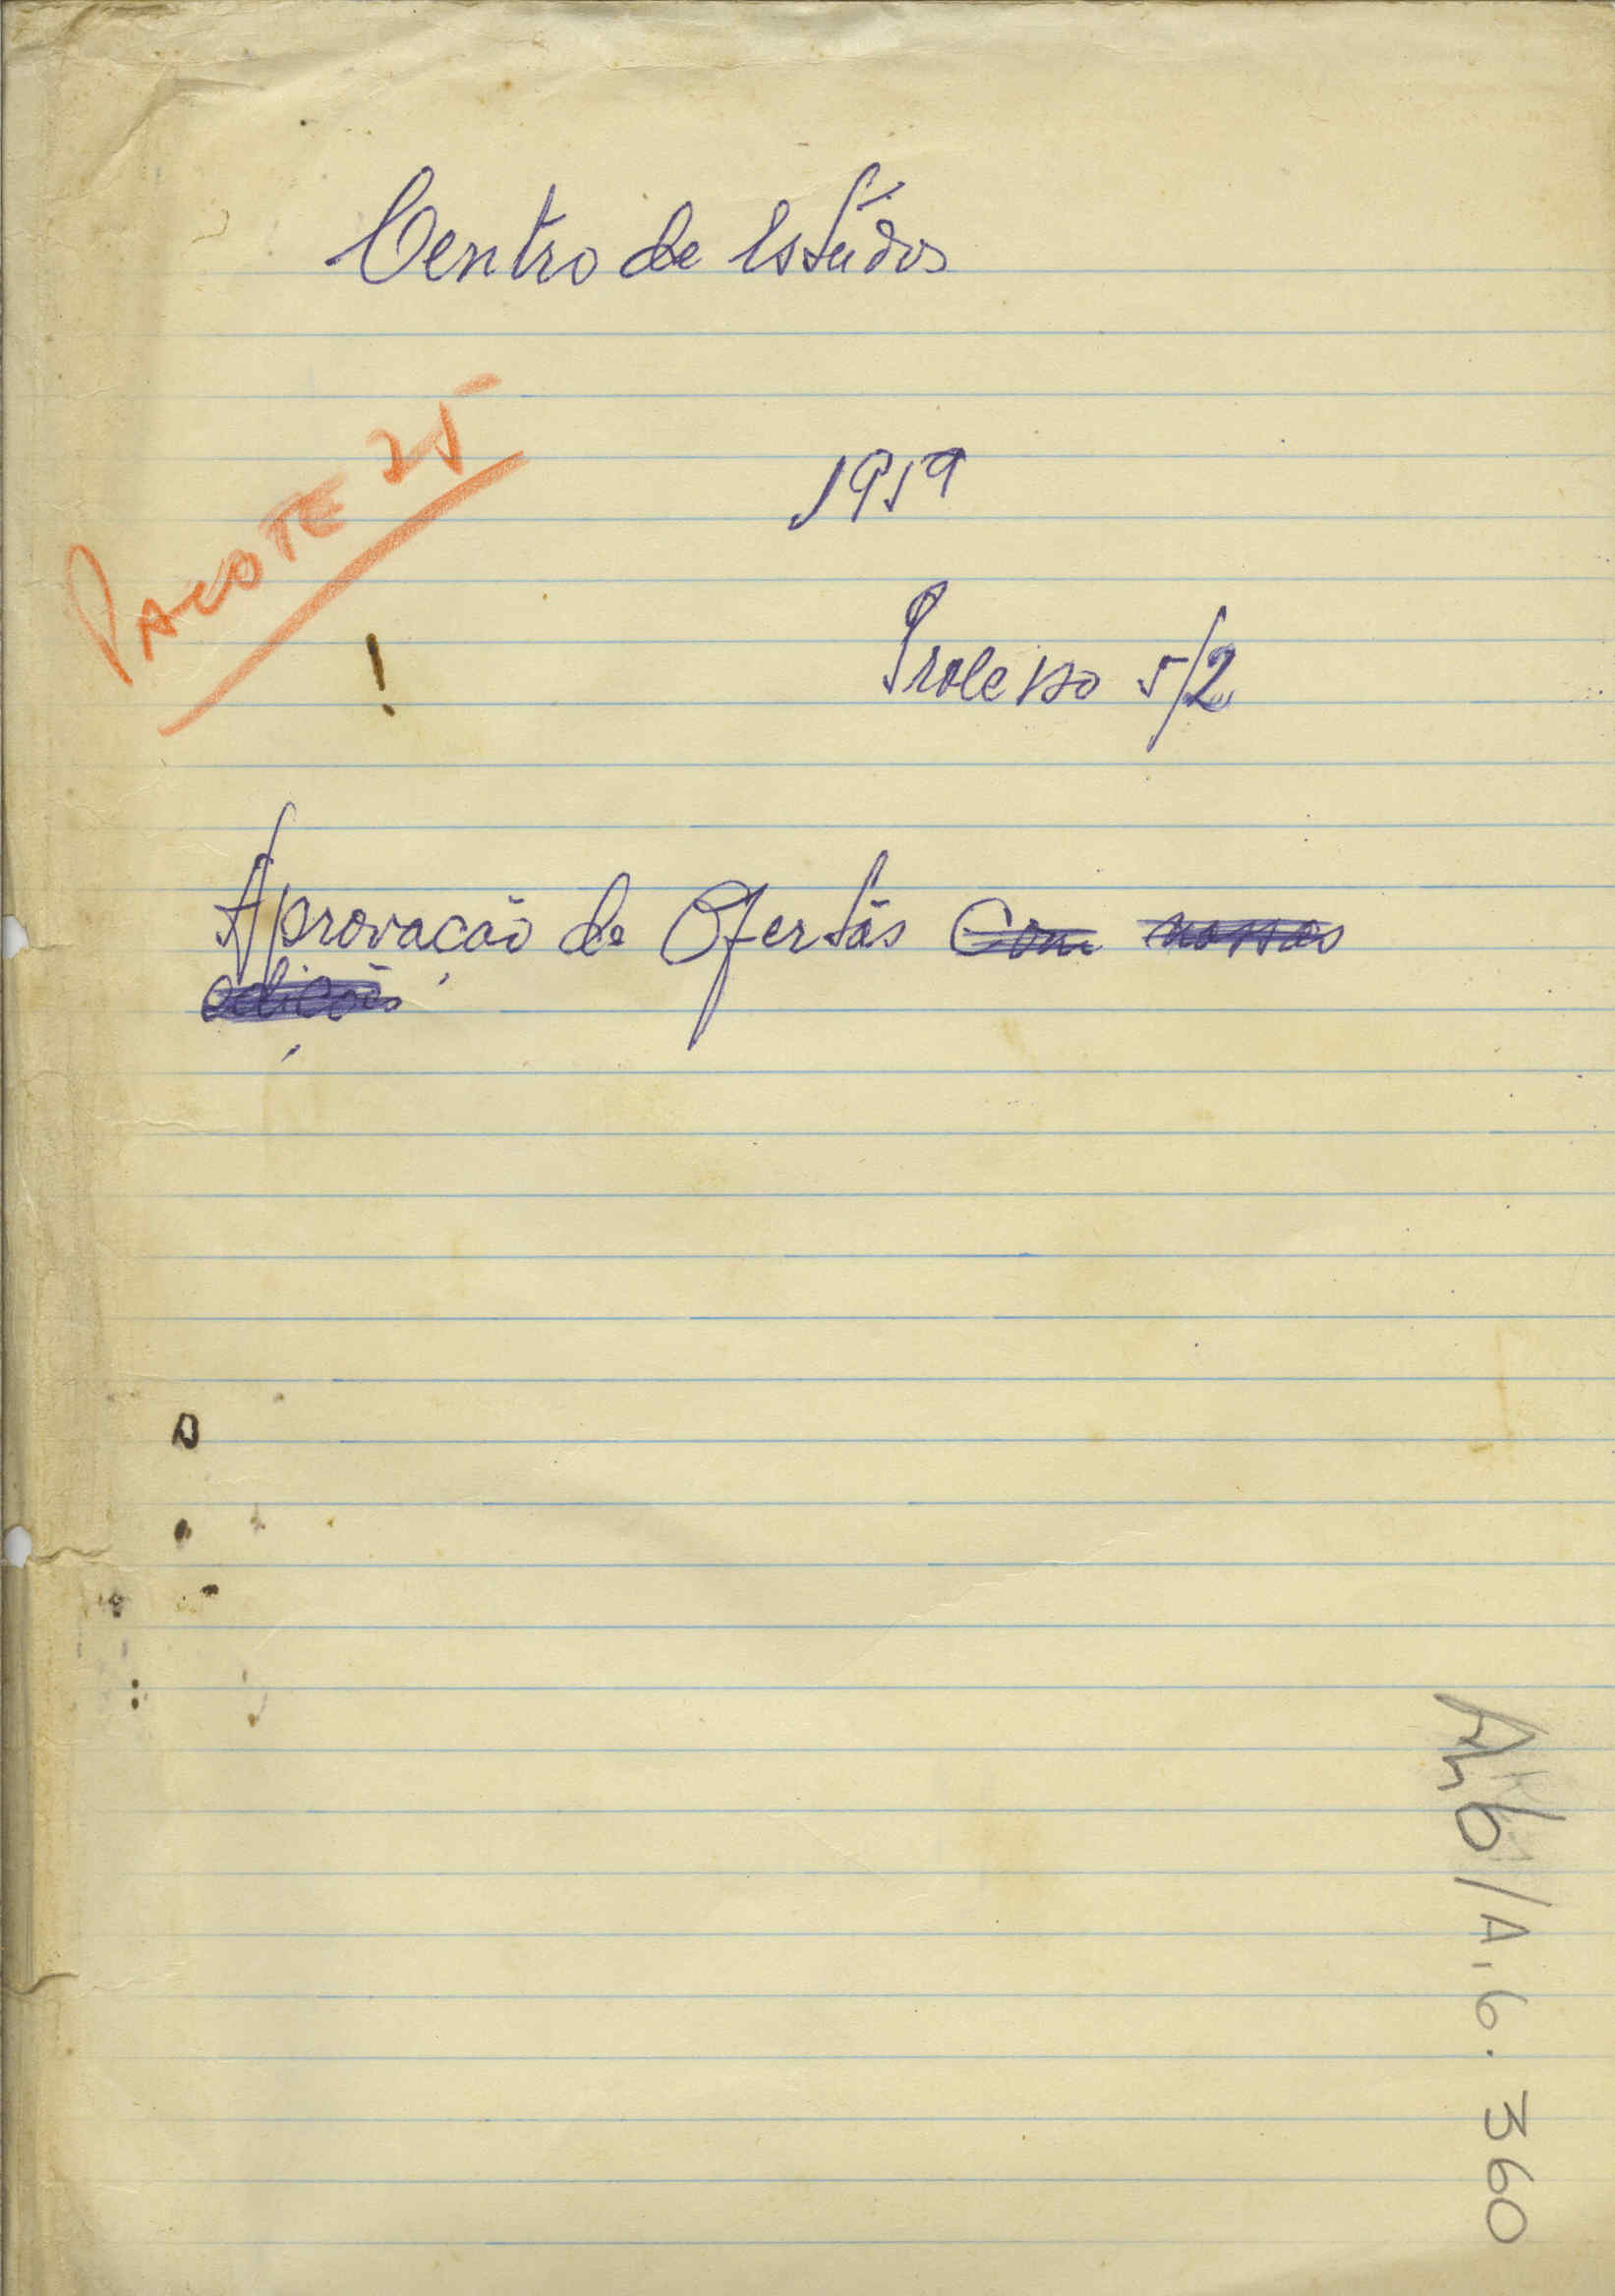 Centro de Estudos
PACOTE 25
1959
Processo 5/2
Aprovação de Ofertas com nossas
edições
/A.6.360